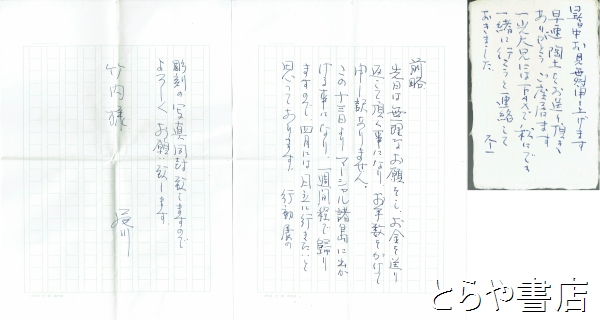 前略
先日は無理なお願をしお金を送り
返して頂く事になり、お手数をかけて
申し訳ありません。
この十三日よりマーシャル諸島に出か
ける事になり、一週間程で帰り
ますので、四月には日立に行きたいと
思っております。行動展の
彫刻の写真同封致しますので
よろしくお願い致します。
竹内様
暑中お見舞申し上げます
早速陶土をお送り頂き
ありがとうございます
大兄には
一緒に行こうと連絡して
おきました
とらや書店